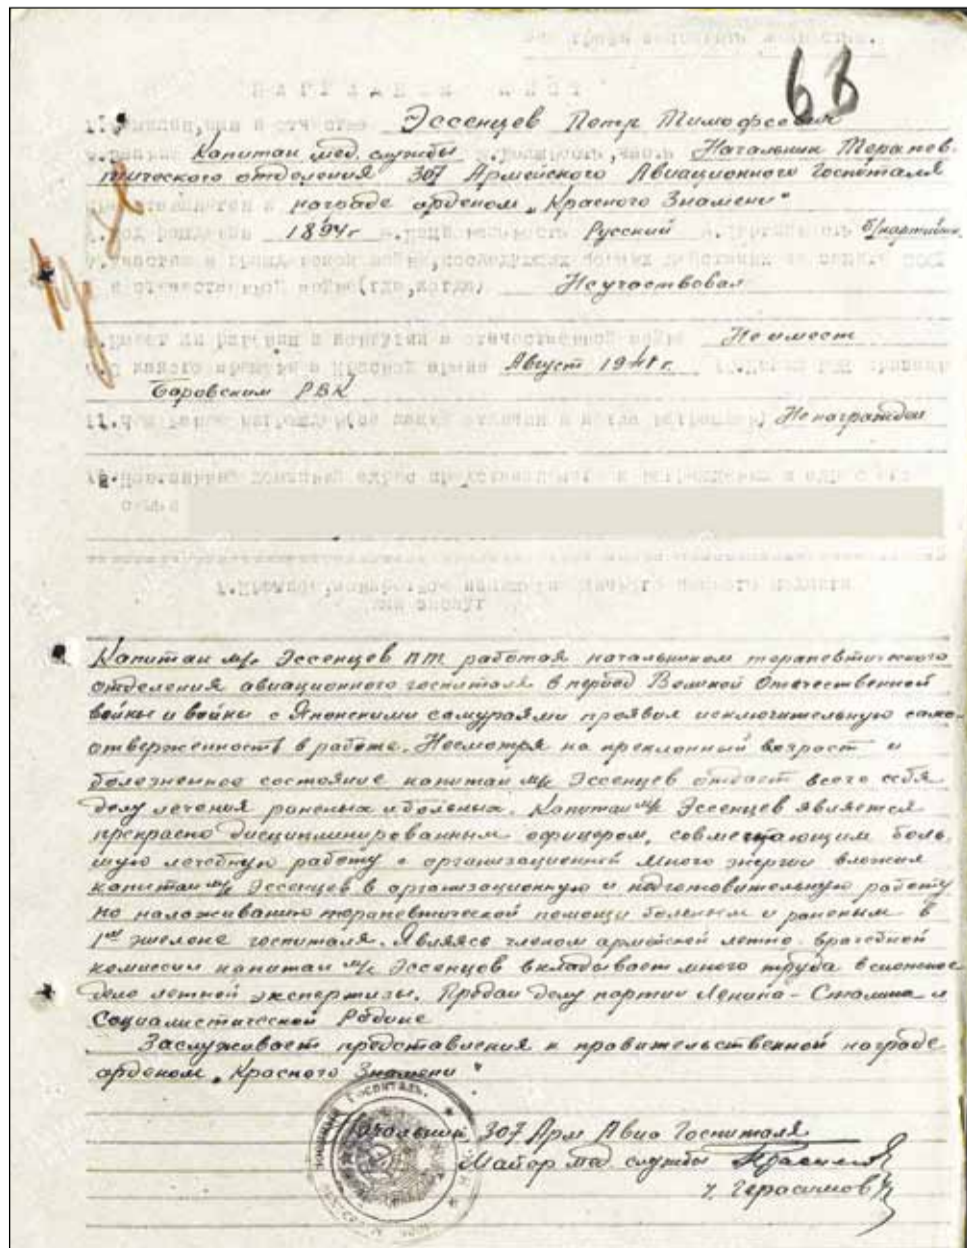 63
НАГРАДНОЙ ЛИСТ
1. Фамилия, имя и отчество Эссенцев Петр Тимофеевич
2. Звание Капитан мед. службы 3. Должность, часть Начальник Терапев-
тического отделения 307 Армейского Авиационного Госпиталя
представляется к награде орденом „Красного Знамени"
4. Год рождения 1894 г 5. Национальность Русский 6. Партийность б/партийн.
7. Участие в гражданской войне, последующих боевых действиях по защите СССР
и отечественной войне (где, когда) Не участвовал
8. Имеет ли ранения и контузии в отечественной войне Не имеет
9. С какого времени в Красной армии Август 1941 г. 10. Каким РВК призван
Боровским РВК
11. Чем ранее награжден (за какие отличия и когда награжден) Не награжден
12. Постоянный домашний адрес представляемого к награждению и адрес его
семьи
1. Краткое, конкретное изложение личного боевого подвига
или заслуг
Капитан м/с Эссенцев ПТ работая начальником терапевтического
отделения авиационного госпиталя в период Великой Отечественной
войны и войны с Японскими самураями проявил исключительную само-
отверженность в работе. Несмотря на преклонный возраст и
болезненное состояние капитан м/с Эссенцев отдает всего себя
делу лечения раненых и больных. Капитан м/с Эссенцев является
прекрасно дисциплинированным офицером, совмещающим боль-
шую лечебную работу с организационной Много энергии вложил
капитан м/с Эссенцев в организационную и подготовительную работу
по налаживанию терапевтической помощи больным и раненым в
1ом эшелоне госпиталя. Являясь членом армейской летно-врачебной
комиссии капитан м/с Эссенцев вкладывает много труда в сложное
дело летной экспертизы. Предан делу партии Ленина-Сталина и
Социалистической Родине
Заслуживает представления к правительственной награде
орденом „Красного Знамени"
Начальник 307 Арм Авиа Госпиталя
Майор мед службы
/Герасимов/